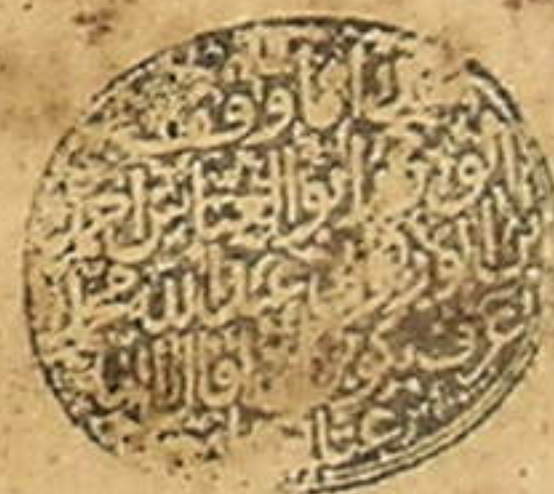 هذا ما وقف
الوزير ابو العباس احمد
ابن الوزير ابي عبد الله محمد
عرف بكوپريلي اقال الله